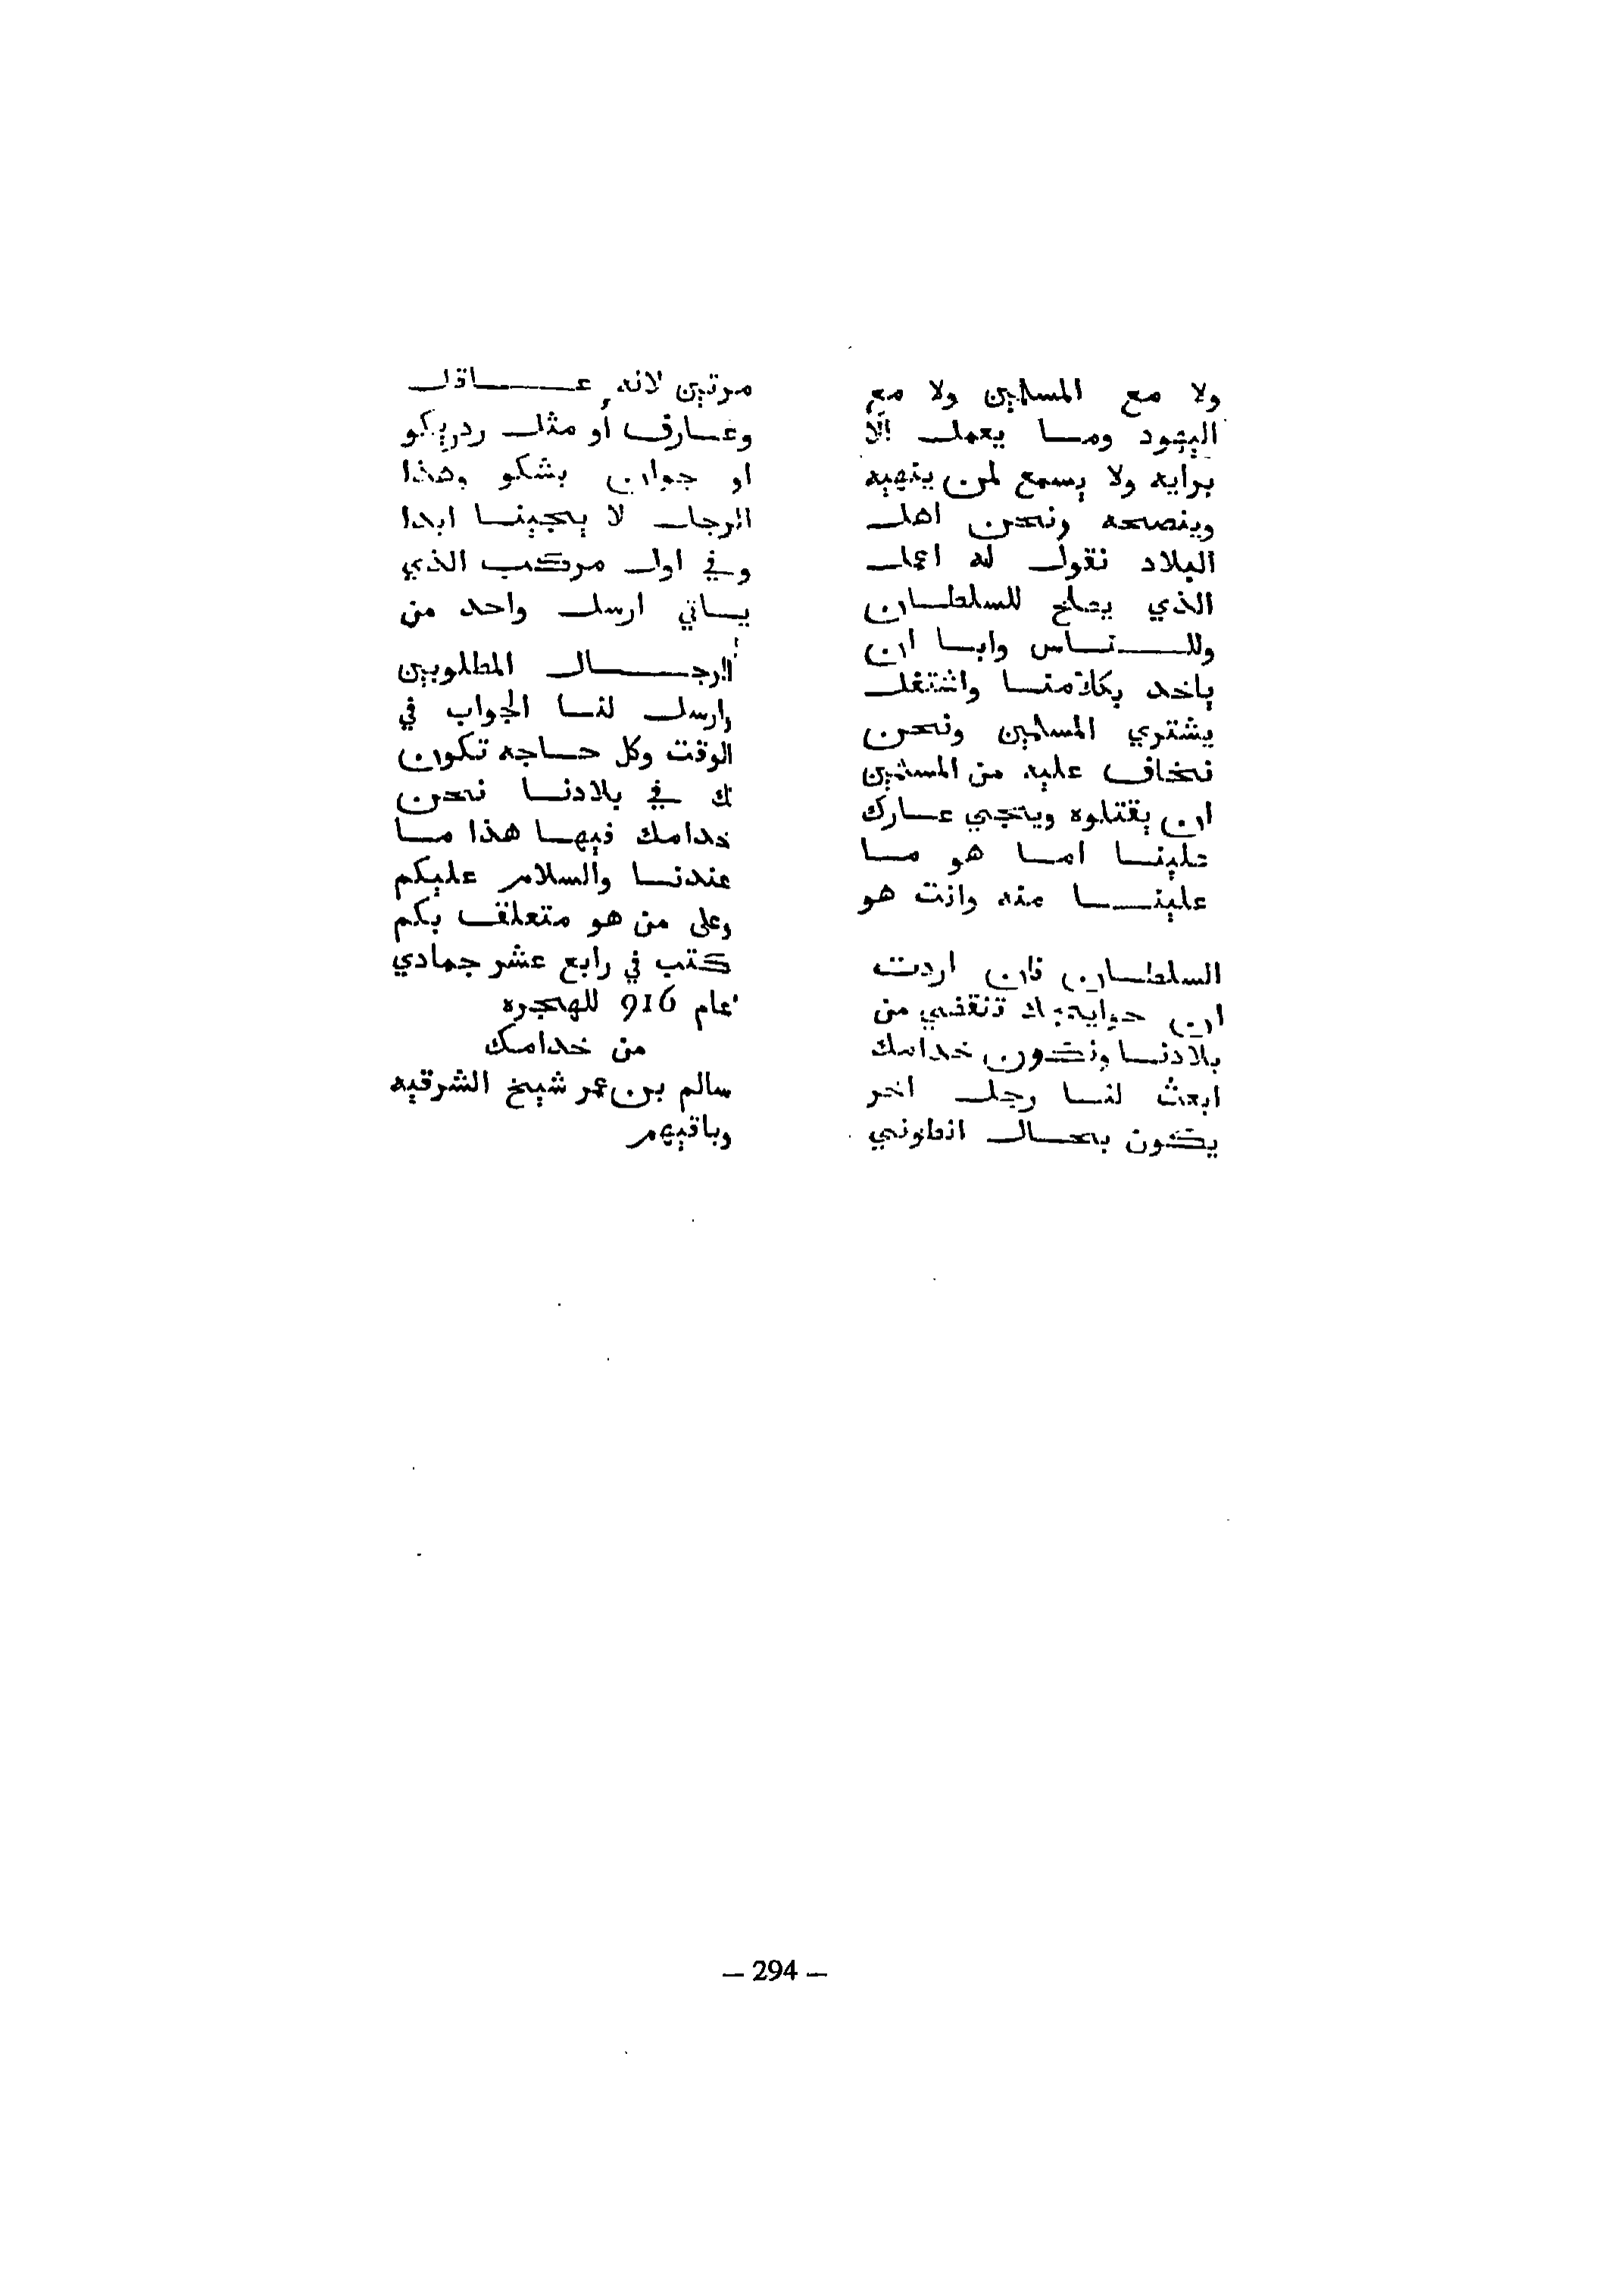 ولا مع المسلمين ولا مع
اليهود ومــا يعمل الا
برايه ولا يسمع لمن ينهيه
وينصحه ونحن اهل
البلاد نقول له اعمل
الذي يصلح للسلطــان
وللــنــاس وابــا ان
ياخد بكلامنــا واشتغل
يشتري المسلمين ونحن
نخاف عليه من المسلمين
ان يقتلوه ويجي عــارك
علينــا امــا هو مــا
علينــا منه وانت هو
السلطــان فان اردت
ان حوايجك تنقضي من
بلادنــا ونكون خدامك
ابعث لنــا رجل اخر
يكون بحــال انطوني
مرتين لانه عــاقل
وعــارف او مثل ردريكو
او جوان بشكو وهذا
الرجل لا يجينــا ابدا
وفي اول مركب الذي
يــاتي ارسل واحد من
الرجــال المطلوبين
وارسل لنــا الجواب في
الوقت وكل حــاجه تكون
لك في بلادنــا نحن
خدامك فيهــا هذا مــا
عندنــا والسلام عليكم
وعلى من هو متعلق بكم
كتب في رابع عشر جمادي
عام 916 للهجره
من خدامك
سالم بن عمر شيخ الشرقيه
وباقيهم
– 294 –